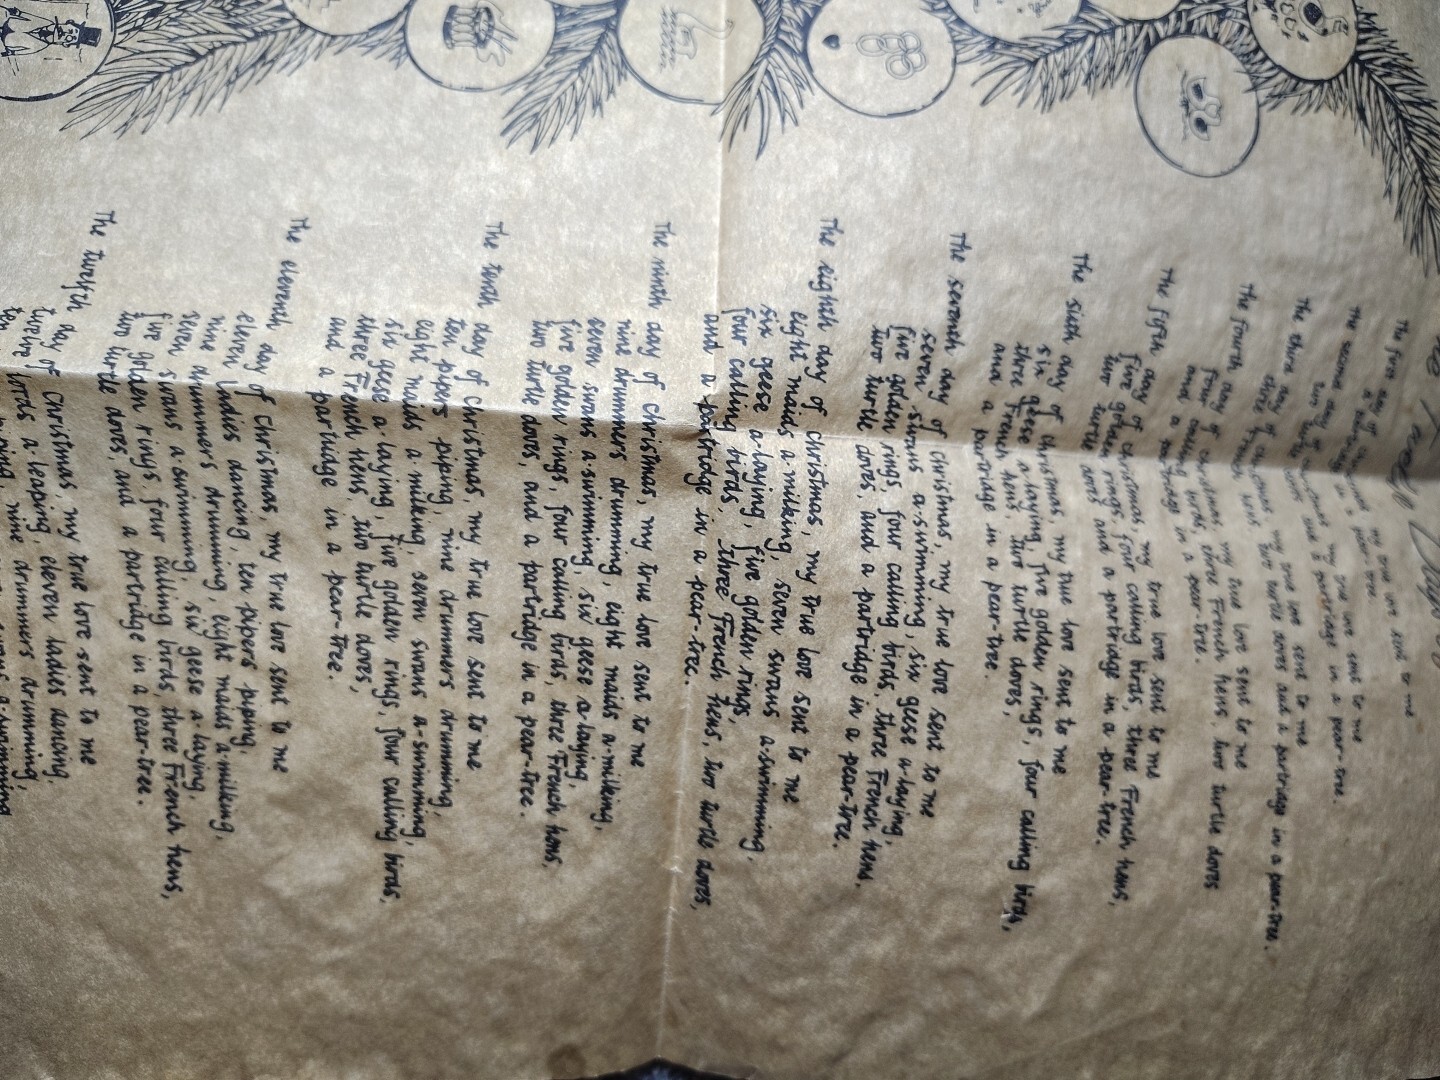 The Twelve Days
The first day of Christmas my true love sent to me
a partridge in a pear-tree.
The second day of Christmas my true love sent to me
two turtle doves and a partridge in a pear-tree.
The third day of Christmas, my true love sent to me
three French hens, two turtle doves and a partridge in a pear-tree.
The fourth day of Christmas, my true love sent to me
four calling birds, three French hens, two turtle doves
and a partridge in a pear-tree.
The fifth day of Christmas, my true love sent to me
five golden rings, four calling birds, three French hens,
two turtle doves and a partridge in a pear-tree.
The sixth day of Christmas, my true love sent to me
six geese a-laying, five golden rings, four calling birds,
three French hens, two turtle doves,
and a partridge in a pear-tree.
The seventh day of Christmas, my true love sent to me
seven swans a-swimming, six geese a-laying,
five golden rings, four calling birds, three French hens,
two turtle doves, and a partridge in a pear-tree.
The eighth day of Christmas, my true love sent to me
eight maids a-milking, seven swans a-swimming,
six geese a-laying, five golden rings,
four calling birds, three French hens, two turtle doves,
and a partridge in a pear-tree.
The ninth day of Christmas, my true love sent to me
nine drummers drumming, eight maids a-milking,
seven swans a-swimming, six geese a-laying,
five golden rings, four calling birds, three French hens,
two turtle doves, and a partridge in a pear-tree.
The tenth day of Christmas, my true love sent to me
ten pipers piping, nine drummers drumming,
eight maids a-milking, seven swans a-swimming,
six geese a-laying, five golden rings, four calling birds,
three French hens, two turtle doves,
and a partridge in a pear-tree.
The eleventh day of Christmas, my true love sent to me
eleven ladies dancing, ten pipers piping,
nine drummers drumming, eight maids a-milking,
seven swans a-swimming, six geese a-laying,
five golden rings, four calling birds, three French hens,
two turtle doves, and a partridge in a pear-tree.
The twelfth day of Christmas, my true love sent to me
twelve lords a-leaping, eleven ladies dancing,
ten piping, nine drummers drumming,
a-swimming